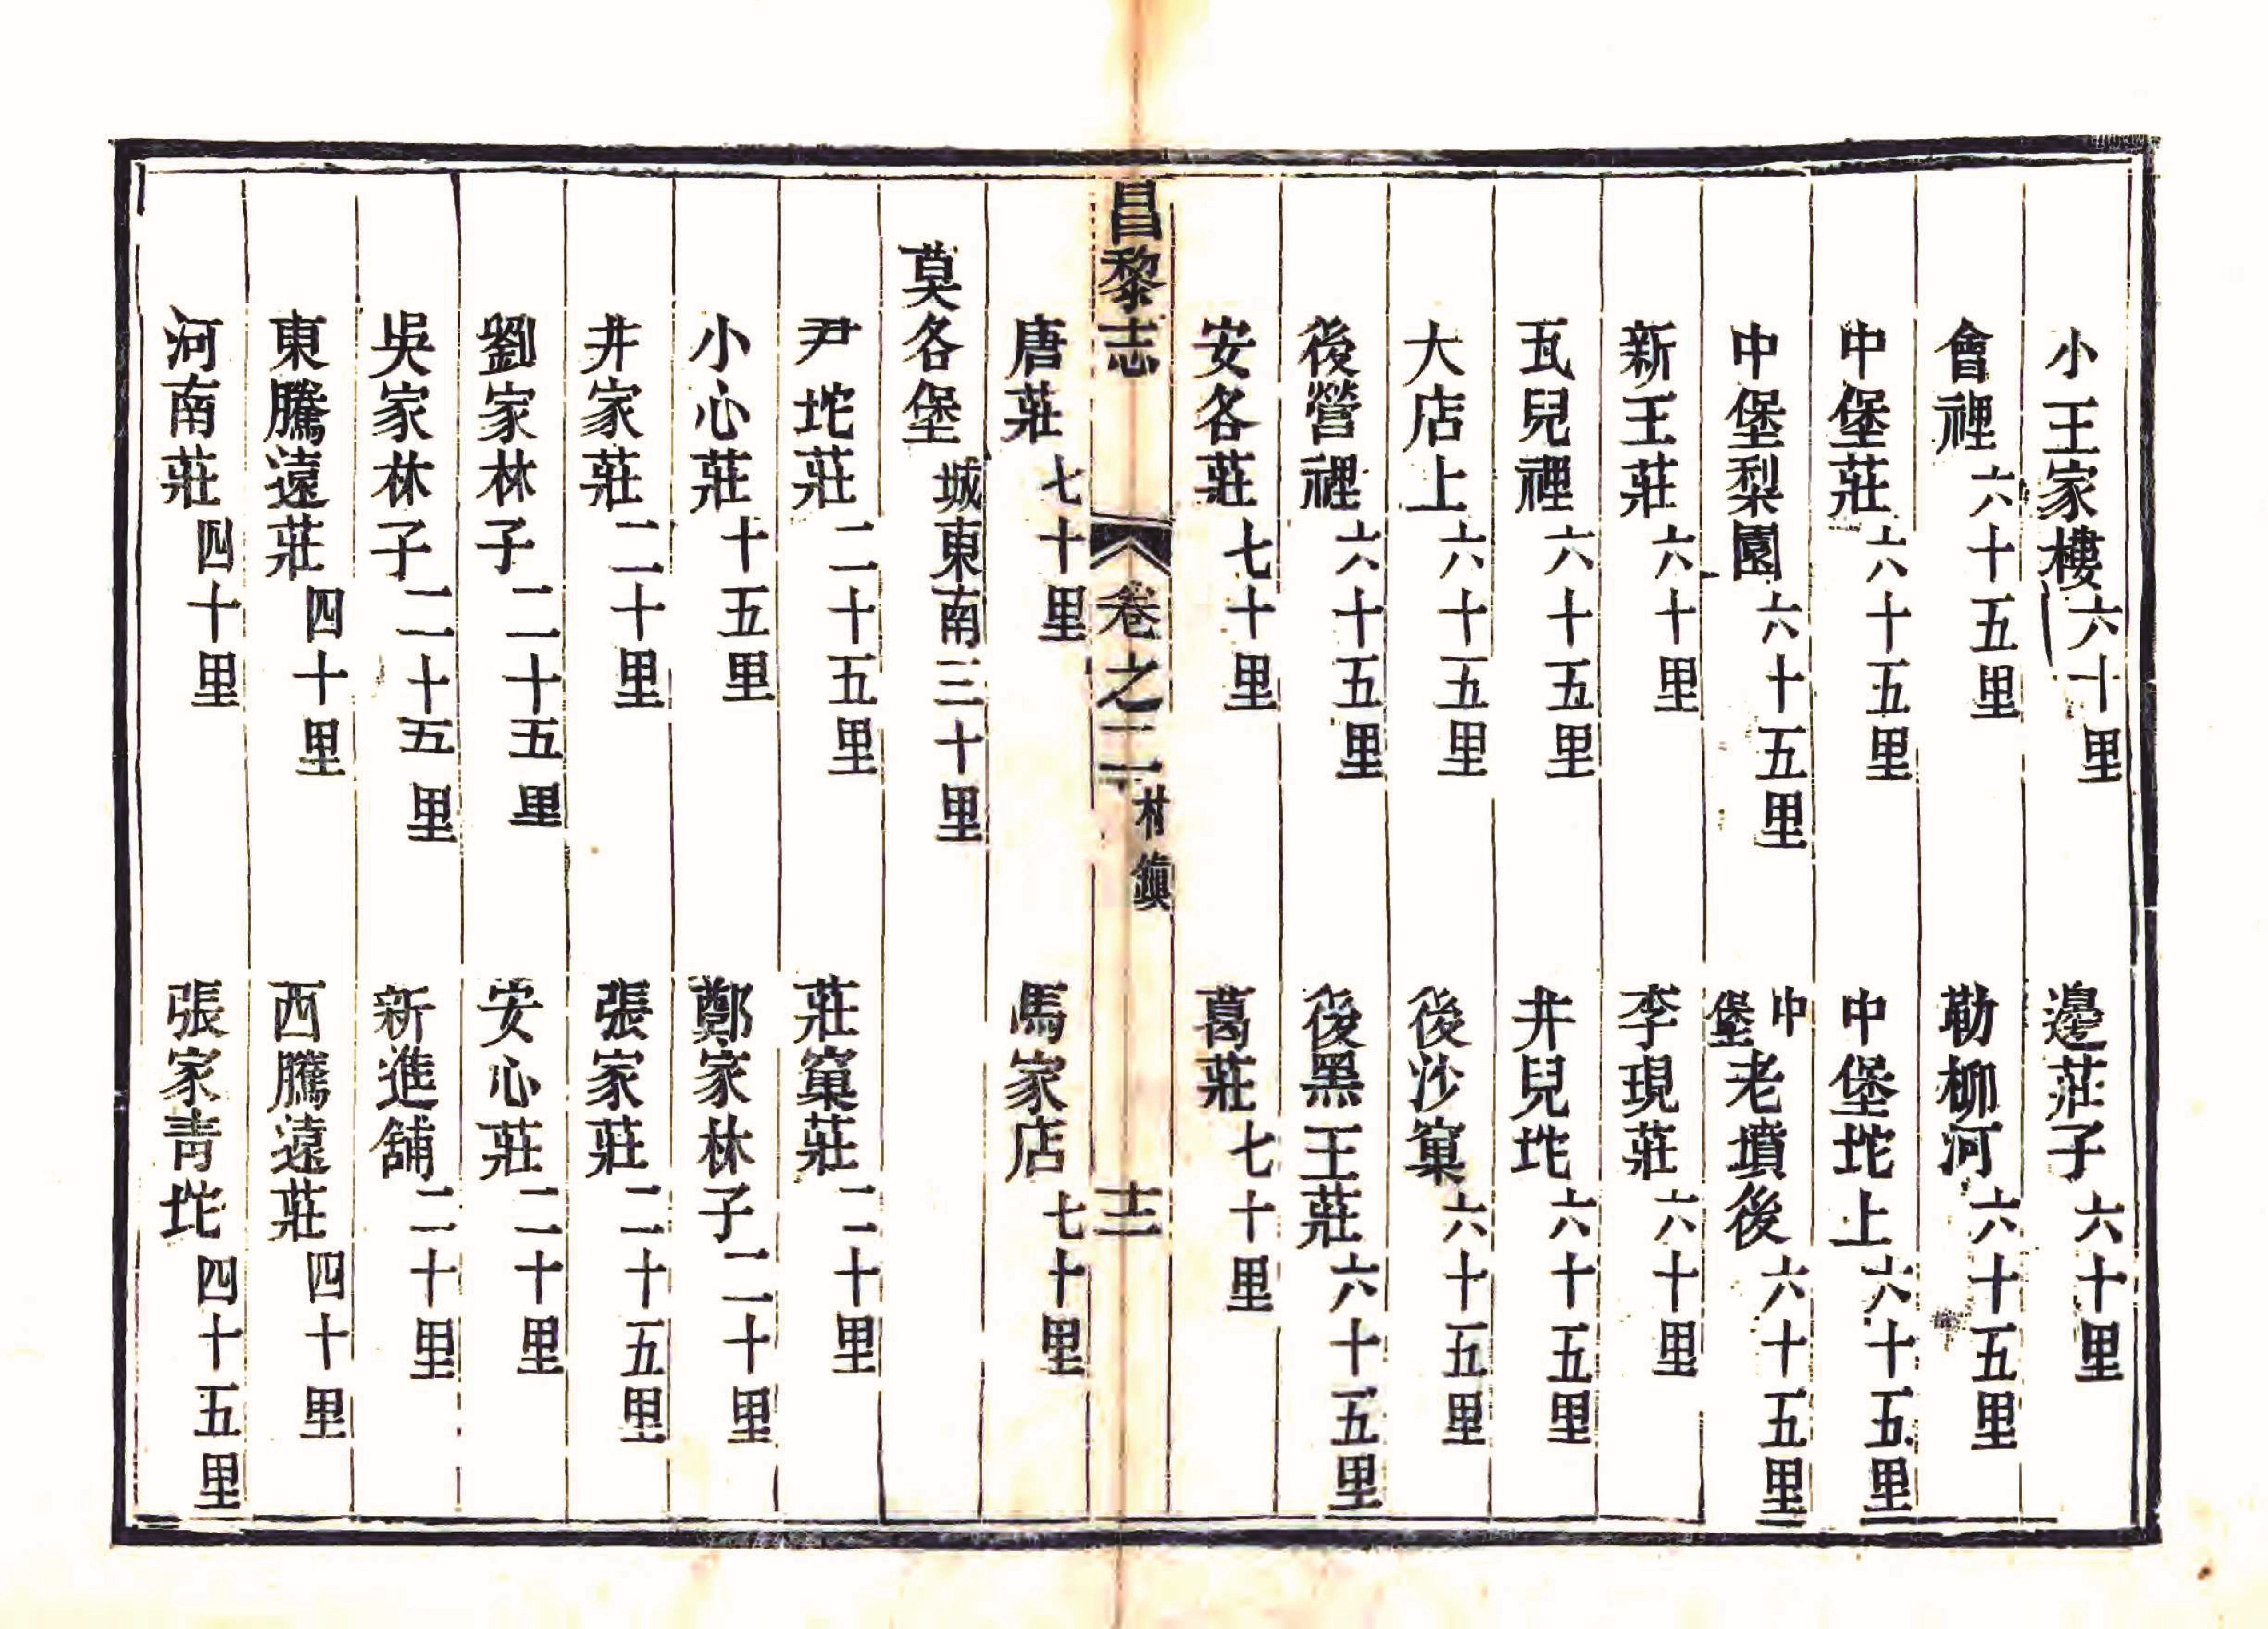 小王家樓六十里 邊莊子六十里
會裡六十五里 勒柳河六十五里
中堡莊六十五里 中堡坨上六十五里
中堡梨園六十五里 中堡老墳後六十五里
新王莊六十里 李現莊六十里
瓦兒裡六十五里 井兒坨六十五里
大店上六十五里 後沙窠六十五里
後營裡六十五里 後黑王莊六十五里
安各莊七十里 葛莊七十里
昌黎志 卷之二 村鎮 十二
唐莊七十里 馬家店七十里
莫各堡城東南三十里
尹坨莊二十五里 莊窠莊二十里
小心莊十五里 鄭家林子二十里
井家莊二十里 張家莊二十五里
劉家林子二十五里 安心莊二十里
吳家林子二十五里 新進舖二十里
東騰遠莊四十里 西騰遠莊四十里
河南莊四十里 張家青坨四十五里